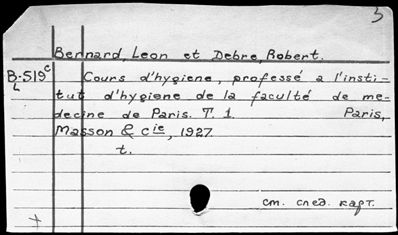 3
Bernard, Leon et Debre, Robert.
B-519c
L
Cours d'hygiene, professé a l'insti-
tut d'hygiene de la faculté de me-
decine de Paris. T. 1. Paris,
Masson & Cie, 1927.
t.
см. след. карт.
+